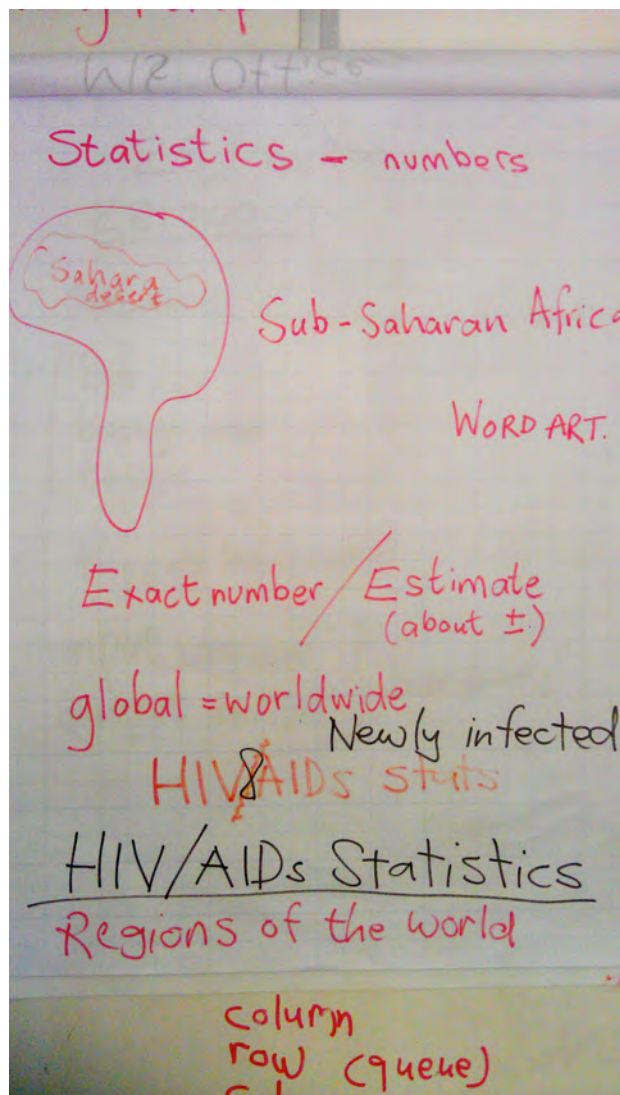 Statistics - numbers
Sahara
desert
Sub-Saharan Africa
WORD ART.
Exact number / Estimate
(about ±.)
global = worldwide
Newly infected
HIV & AIDs stats
HIV/AIDs Statistics
Regions of the world
column
row (queue)